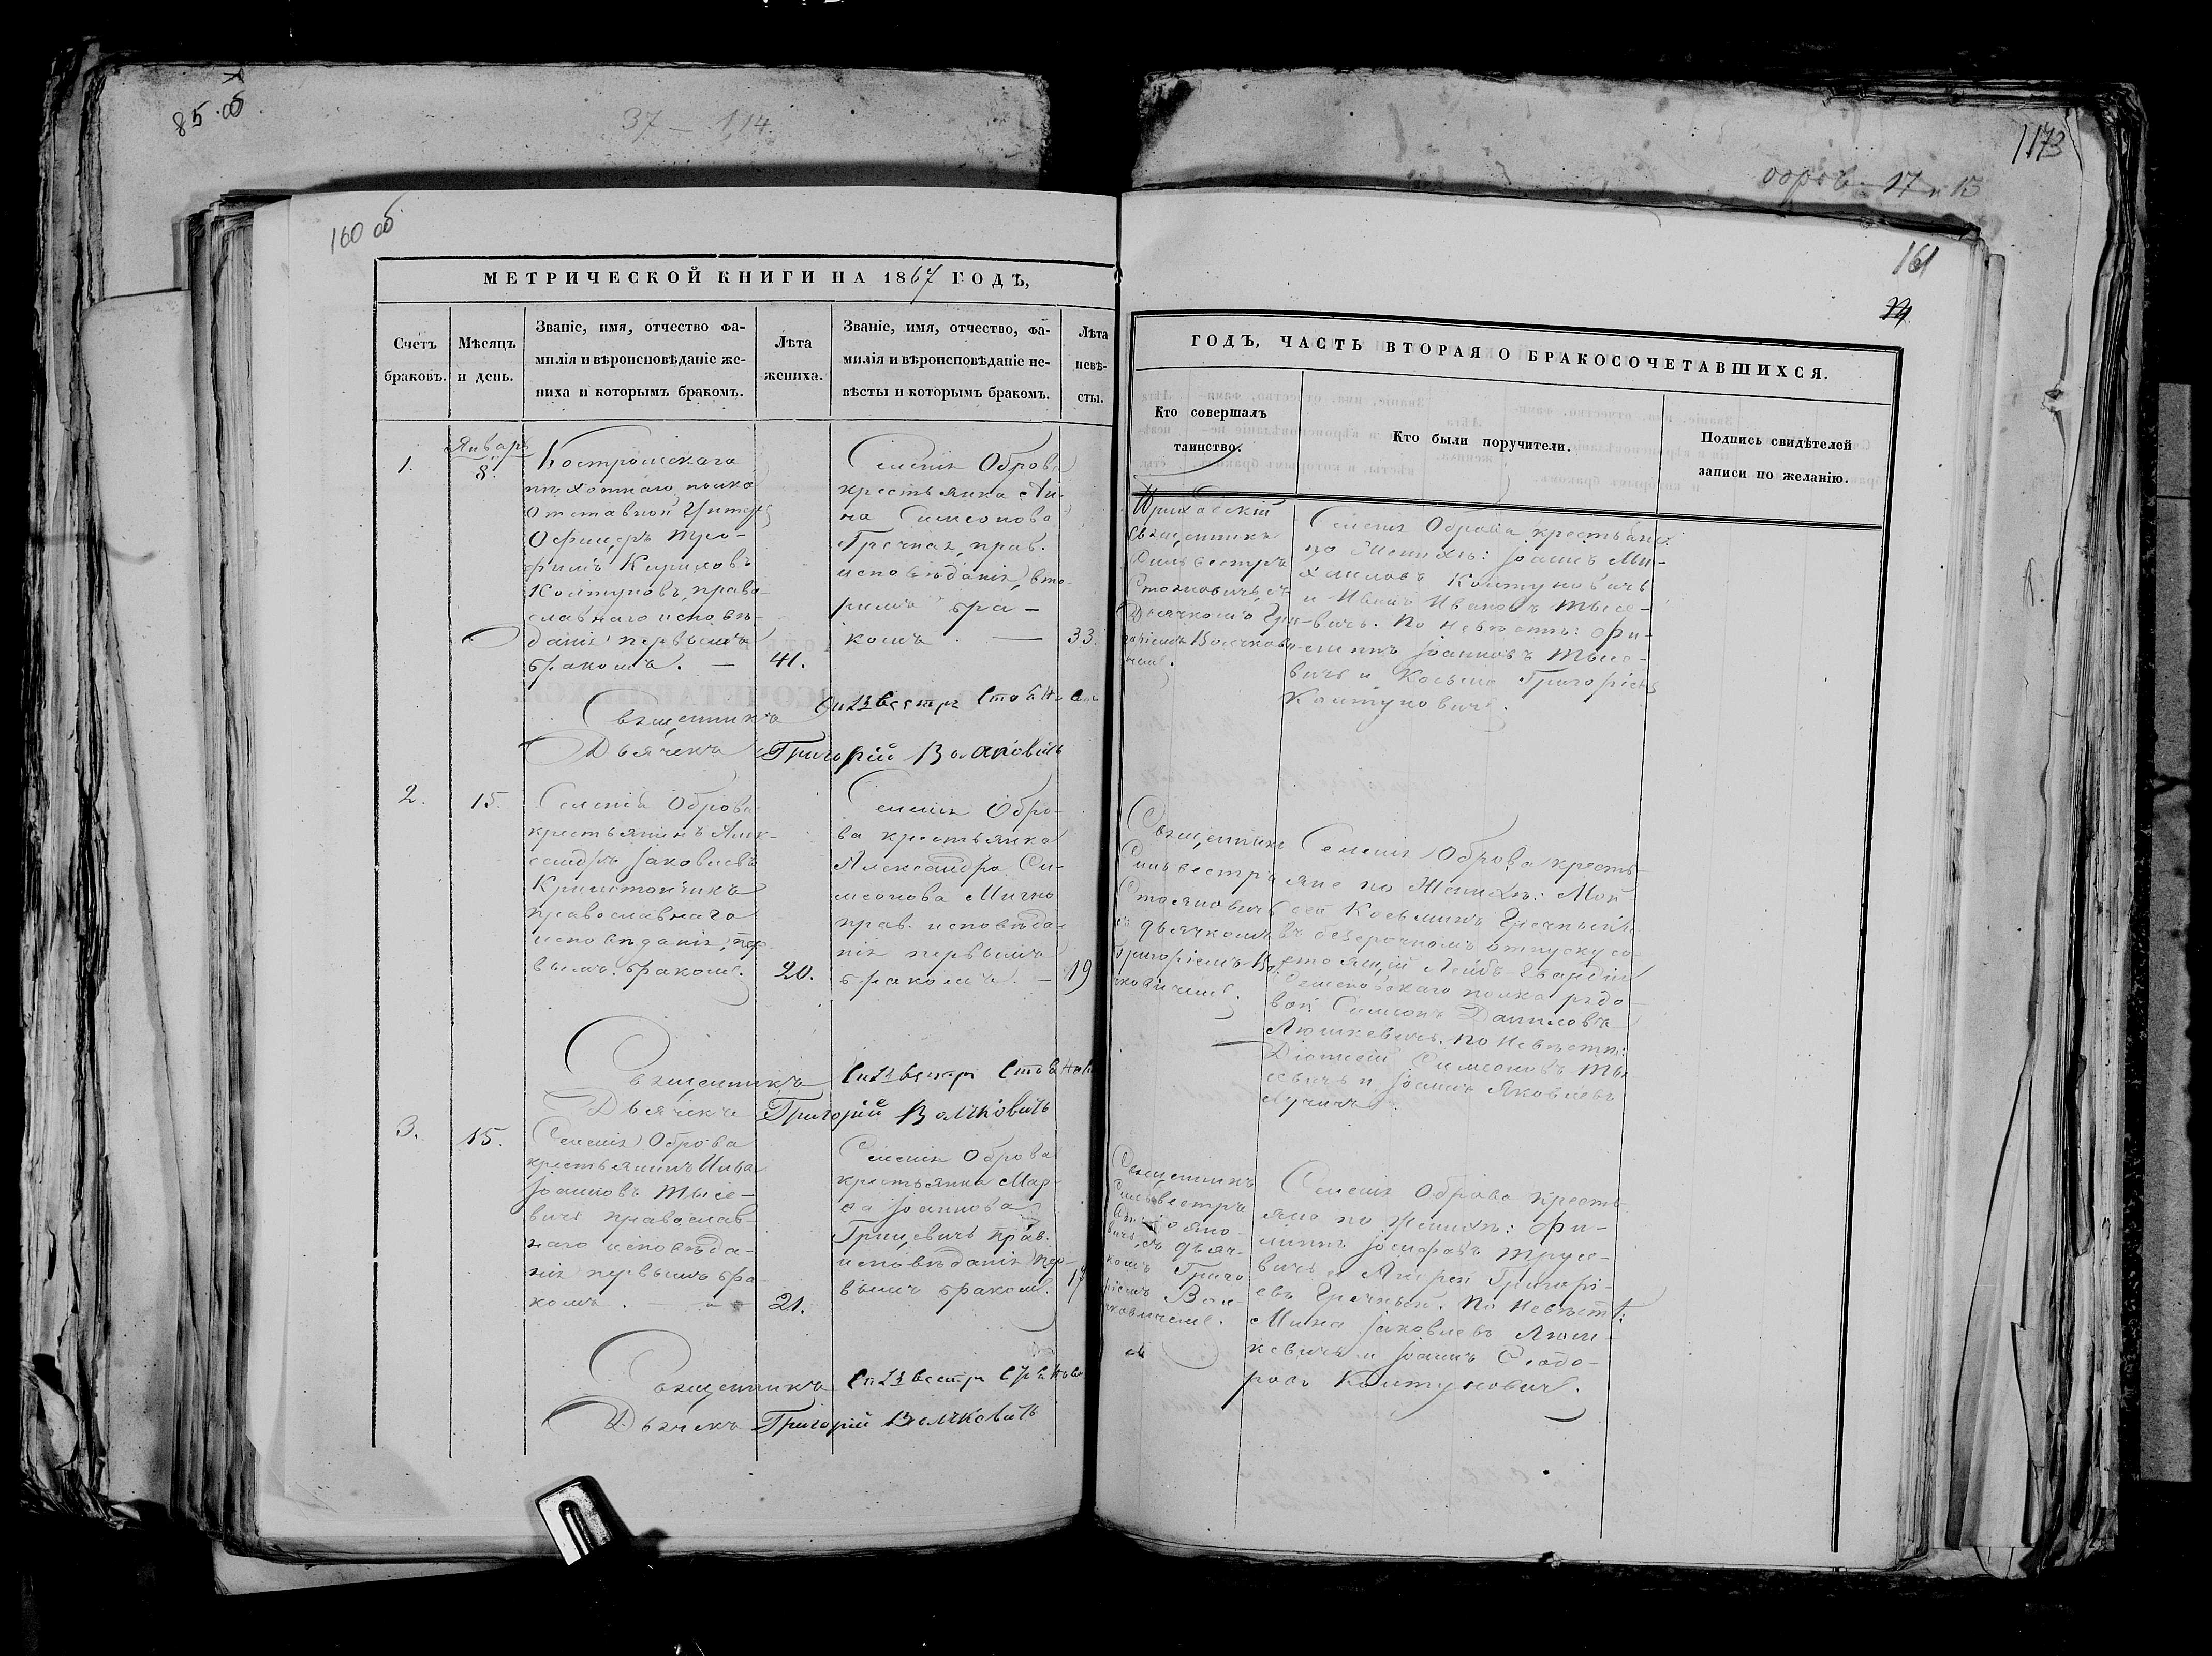 85 об
37 — 114.
173
160 об
161
МЕТРИЧЕСКОЙ КНИГИ НА 1867 ГОДЪ,
Счетъ
браковъ.
Мѣсяцъ
и день.
Званіе, имя, отчество фа-
милія и вѣроисповѣданіе же-
ниха и которымъ бракомъ.
Лѣта
жениха.
Званіе, имя, отчество, фа-
милія и вѣроисповѣданіе не-
вѣсты и которымъ бракомъ.
Лѣта
невѣ-
сты.
1.
Январь
8.
Костромскаго
пѣхотнаго полка
Отставной Унтеръ
Офицеръ Тро-
фимъ Кириловъ
Колтуновъ, право
славнаго исповѣ-
данія первымъ
бракомъ. —
41.
Селенія Оброва
крестьянка Ан-
на Симеонова
Гречная, прав.
исповѣданія, вто
рымъ бра-
комъ. —
33.
Священникъ Сильвестръ
Дьячекъ Григорій Волчковичь
2.
15.
Селенія Оброва
крестьянинъ Алек-
сандръ Іаковлевъ
православнаго
исповѣданія, пер-
вымъ бракомъ.
20.
Селенія Обро-
ва крестьянка
Александра Си-
меонова Мичко
прав. исповѣда-
нія первымъ
бракомъ. —
19
Священникъ Сильвестръ
Дьячекъ Григорій Волчковичь
3.
15.
Селенія Оброва
крестьянинъ
Іоанновъ Тысе-
вичь православ-
наго исповѣда-
нія первымъ бра-
комъ. —
21.
Селенія Оброва
крестьянка Мар-
ѳа Іоаннова
Грицевичь прав.
исповѣданія пер-
вымъ браком.
17
Священникъ Сильвестръ
Дьячекъ Григорій Волчковичь
ГОДЪ, ЧАСТЬ ВТОРАЯ О БРАКОСОЧЕТАВШИХСЯ.
Кто совершалъ
таинство.
Кто были поручители.
Подпись свидѣтелей
записи по желанію.
священникъ
Сильвестръ
Стояновичь, съ
Дьячкомъ Гри-
горіемъ Волчкови-
чемъ.
Селенія Оброва крестьяне:
по Женихѣ: Іоаннъ Ми-
хаиловъ Колтуновичь
и Иванъ Ивановъ Тысе-
вичь. По невѣстѣ: Фи-
липпъ Іоанновъ Тысе-
вичь и Косьма Григоріевъ
Колтуновичь.
Священникъ
Сильвестръ
Стояновичь
съ дьячкомъ
Григоріемъ Вол-
чковичемъ.
Селенія Оброва кресть-
яне по Женихѣ: Мои-
сей Косьминъ Гречный и
въ безсрочномъ отпуску со-
стоящій Лейбъ-Гвардіи
Семеновскаго полка рядо-
вой Симеонъ Даниловъ
Люшкевичь. По Невѣстѣ:
Діонисій Симеоновъ Ты
севичь и Іоаннъ Яковлевъ
Священникъ
Сильвестръ
Стояно-
вичь, съ дьяч-
комъ Григо
ріемъ Вол-
чковичемъ.
Селенія Оброва кресть-
яне по Женихѣ: Фи-
липпъ Іосифовъ Трусе-
вичь и Андрей Григорі-
евъ Гречный. По Невѣстѣ:
Мина Іаковлевъ Люш-
кевичь и Іоаннъ Ѳеодо-
ровъ Колтуновичь.